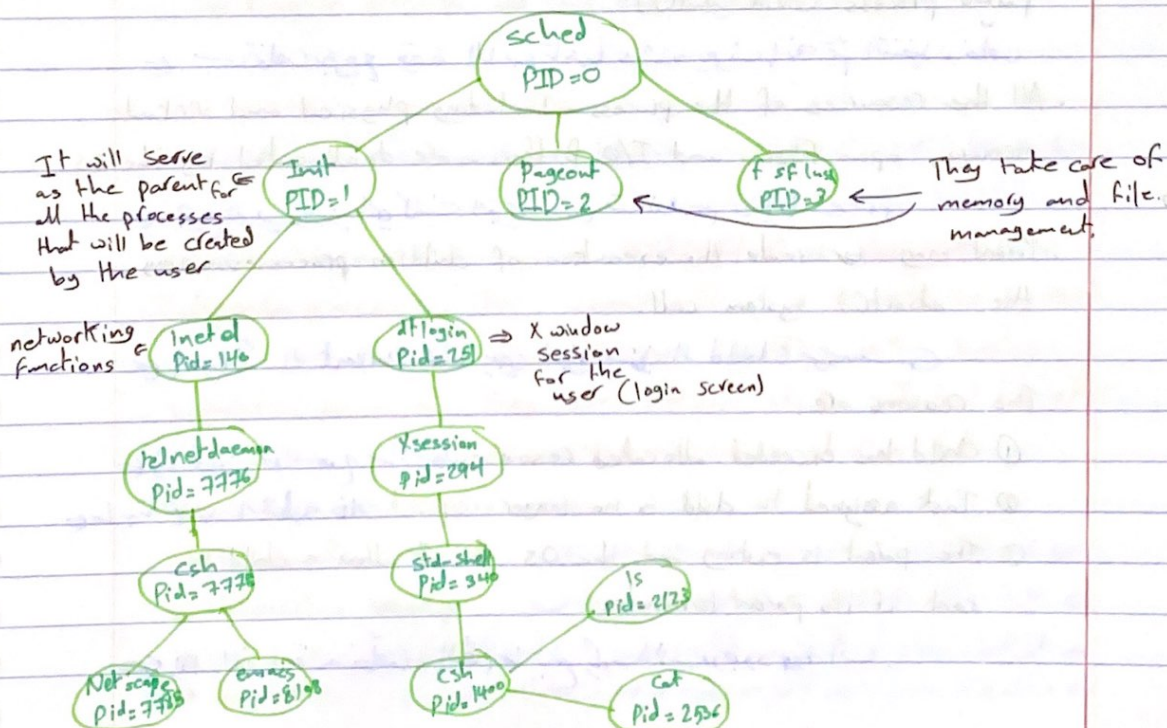 sched
PID=0
It will serve
as the parent for
all the processes
that will be created
by the user
Init
PID=1
Pageout
PID=2
PID=3
They take care of
memory and file
management.
networking
functions
Inetd
Pid=140
dtlogin
Pid=251
X window
session
for the
user (login screen)
telnetdaemon
Pid=7776
Xsession
Pid=294
csh
Pid=7778
std-shell
Pid=340
ls
Pid=2123
Netscape
Pid=7785
emacs
Pid=8198
Csh
Pid=1400
Cat
Pid=2536